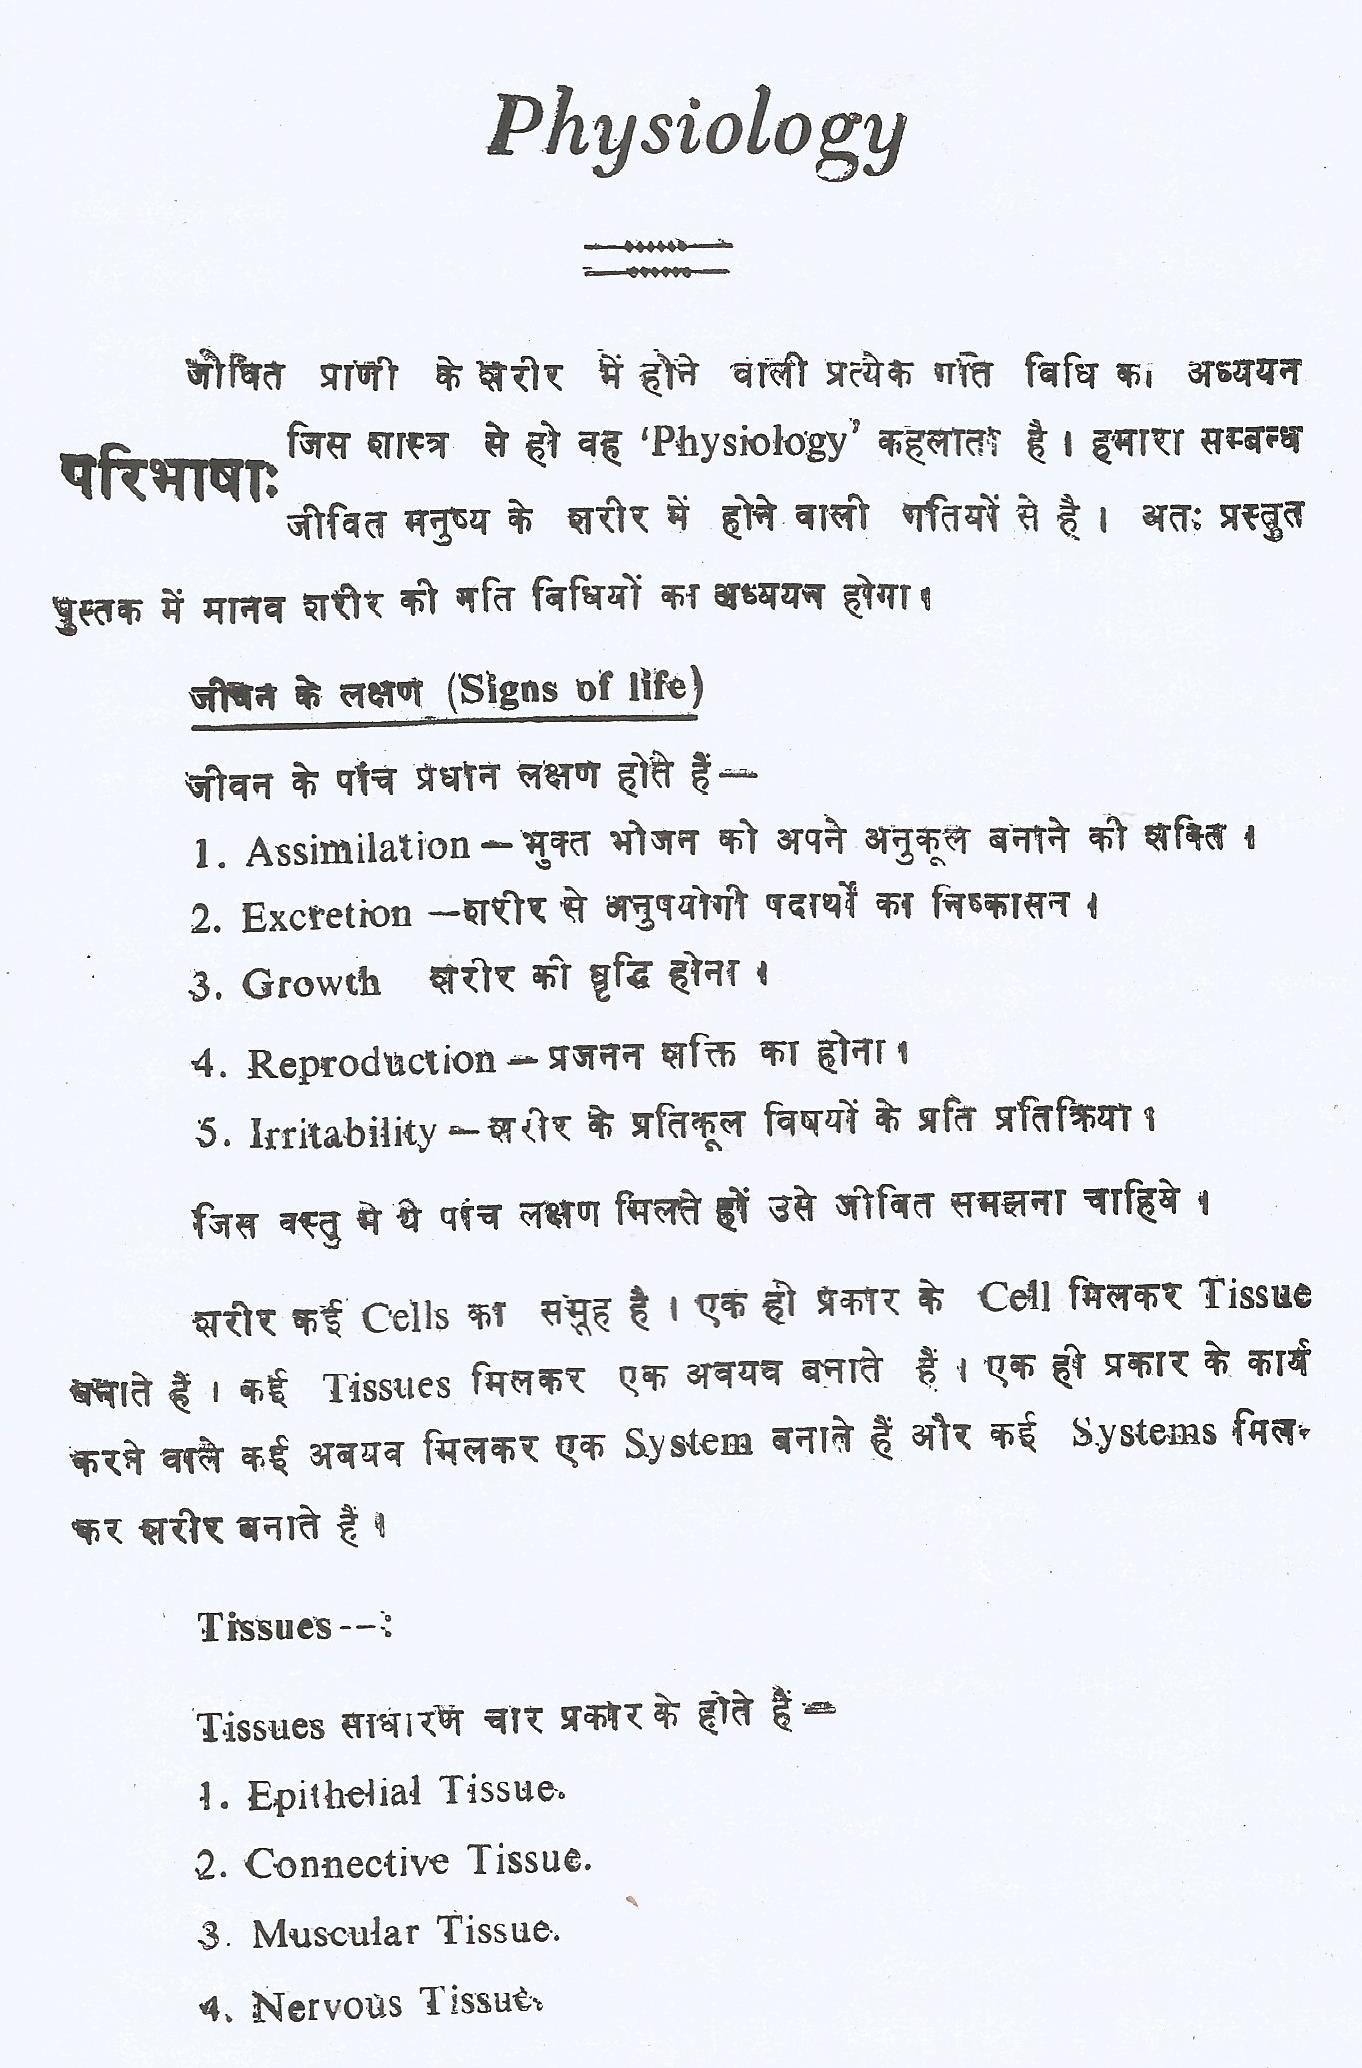 Physiology
जीवित प्राणी के शरीर में होने वाली प्रत्येक गति विधि का अध्ययन
परिभाषाः
जिस शास्त्र से हो वह ‘Physiology’ कहलाता है । हमारा सम्बन्ध
जीवित मनुष्य के शरीर में होने वाली गतियों से है । अतः प्रस्तुत
पुस्तक में मानव शरीर की गति विधियों का अध्ययन होगा ।
जीवन के लक्षण (Signs of life)
जीवन के पांच प्रधान लक्षण होते हैं—
1. Assimilation — भुक्त भोजन को अपने अनुकूल बनाने की शक्ति ।
2. Excretion —शरीर से अनुपयोगी पदार्थों का निष्कासन ।
3. Growth शरीर की वृद्धि होना ।
4. Reproduction — प्रजनन शक्ति का होना ।
5. Irritability — शरीर के प्रतिकूल विषयों के प्रति प्रतिक्रिया ।
जिस वस्तु मे ये पांच लक्षण मिलते हों उसे जीवित समझना चाहिये ।
शरीर कई Cells का समूह है । एक ही प्रकार के Cell मिलकर Tissue
बनाते हैं । कई Tissues मिलकर एक अवयव बनाते हैं । एक ही प्रकार के कार्य
करने वाले कई अवयव मिलकर एक System बनाते हैं और कई Systems मिल-
कर शरीर बनाते हैं ।
Tissues--:
Tissues साधारण चार प्रकार के होते हैं —
1. Epithelial Tissue.
2. Connective Tissue.
3. Muscular Tissue.
4. Nervous Tissue.